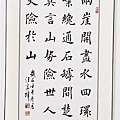 兩崖開盡水回環一
葉纔通石罅間楚客
莫言山勢險世人心
更險於山